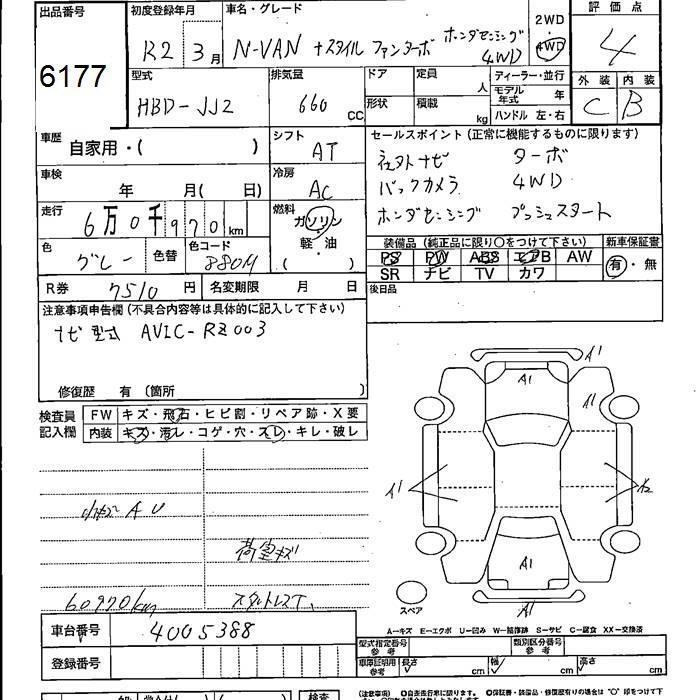 出品番号 初度登録年月 車名・グレード 評価点
6177 R2 3月 N-VAN +スタイル ファンターボ ホンダセンシング 4WD 2WD 4WD 4
型式 排気量 ドア 定員 人 ディーラー・並行 外装 内装
HBD-JJ2 660 CC 形状 積載 kg モデル年式 年 C B
ハンドル 左・右
車歴 自家用・( ) シフト AT セールスポイント (正常に機能するものに限ります)
車検 年 月( 日) 冷房 AC 社外ナビ ターボ
バックカメラ 4WD
走行 6万0千970km 燃料 ガソリン・軽・油 ( ) ホンダセンシング プッシュスタート
色 グレー 色替 色コード 880M 装備品 (純正品に限り○をつけて下さい) 新車保証書
PS PW ABS エアB AW 有・無
SR ナビ TV カワ
R券 7510円 名変期限 月 日 後日品
注意事項申告欄 (不具合内容等は具体的に記入して下さい)
ナビ型式 AVIC-RZ003
修復歴 有 (箇所 )
検査員記入欄 FW キズ・飛石・ヒビ割・リペア跡・X要
内装 キズ・汚レ・コゲ・穴・スレ・キレ・破レ
A1
A1
A1
A1 A2
AU
荷室キズ
A1
60970km スタットレスT.
スペア A1
A-キズ E-エクボ U-凹み W-補修跡 S-サビ C-腐食 XX-交換済
車台番号 4005388 型式指定番号 参考 類別区分番号 参考
登録番号 車庫証明用 参考 長さ cm 幅 cm 高さ cm